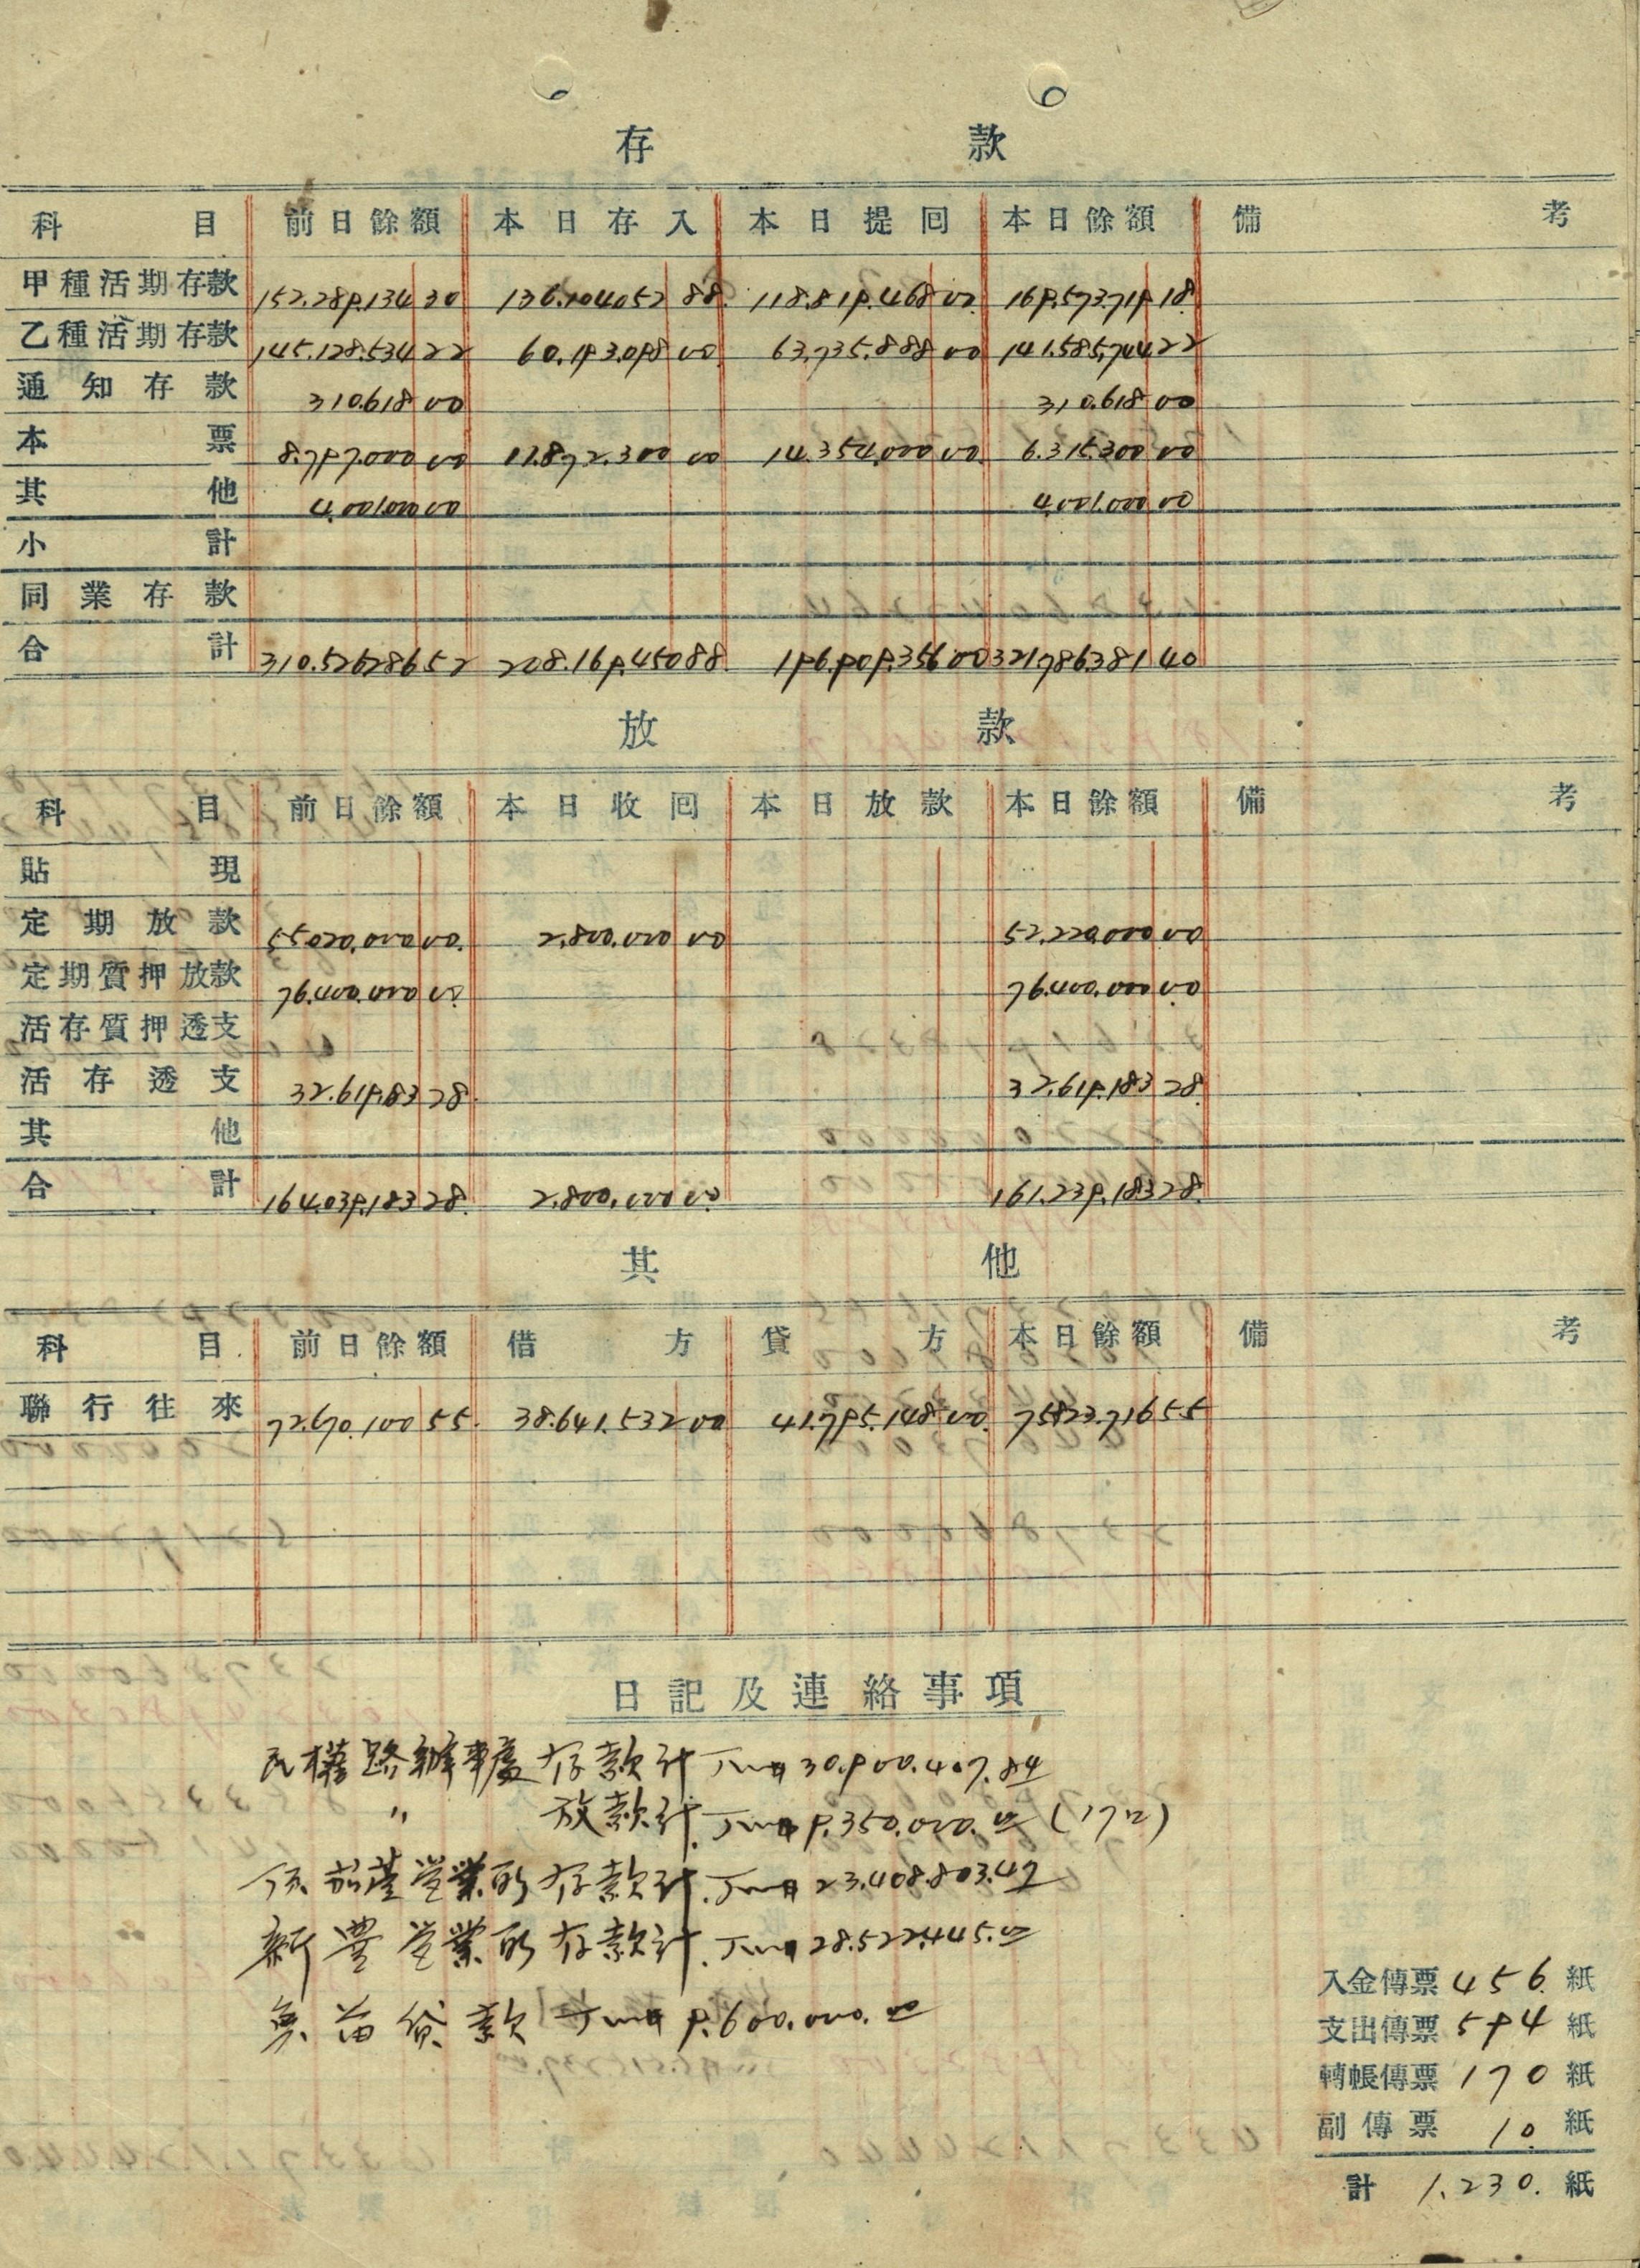 存款
科目 前日餘額 本日存入 本日提回 本日餘額 備考
甲種活期存款 152.289.134 30 136.104.052 88 118.819.468 00 169.573.719 18
乙種活期存款 145.128.534 22 60.193.098 00 63.735.888 00 141.585.744 22
通知存款 310.618 00 310.618 00
本票 8.797.000 00 11.872.300 00 14.354.000 00 6.315.300 00
其他 4.001.000 00 4.001.000 00
小計
同業存款
合計 310.526.286 52 208.169.450 88 196.909.356 00 321.786.381 40
放款
科目 前日餘額 本日收回 本日放款 本日餘額 備考
貼現
定期放款 55.020.000 00 2.800.000 00 52.220.000 00
定期質押放款 76.400.000 00 76.400.000 00
活存質押透支
活存透支 32.619.183 28 32.619.183 28
其他
合計 164.039.183 28 2.800.000 00 161.239.183 28
其他
科目 前日餘額 借方 貸方 本日餘額 備考
聯行往來 72.670.100 55 38.641.532 00 41.795.148 00 75.823.716 55
日記及連絡事項
民權路辦事處 存款計 30.900.407.84
〃 放款計 9.350.000.00 (17口)
營業所 存款計 23.408.803.47
新豐營業所 存款計 28.522.445.00
魚苗貸款 9.600.000.00
入金傳票 456 紙
支出傳票 594 紙
轉帳傳票 170 紙
副傳票 10 紙
計 1.230 紙